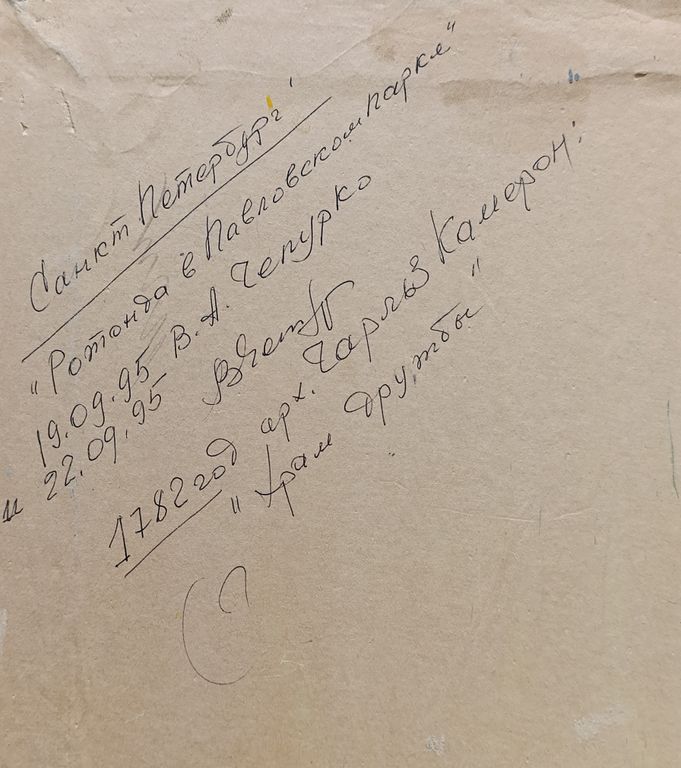 Санкт Петербург
"Ротонда в Павловском парке"
19.09.95 В.А. Чепурко
и 22.09.95
1782 год арх. Чарльз Камерон:
"Храм дружбы"